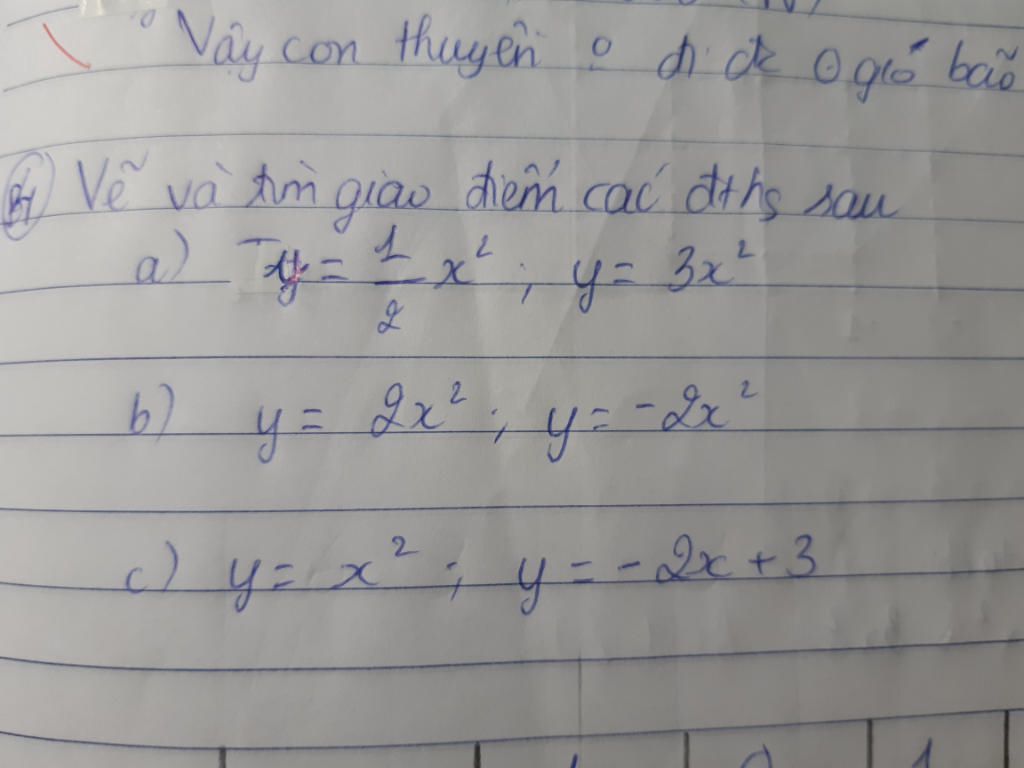 Vậy con thuyền o đi đc 0 gió bão
B4 Vẽ và tìm giao điểm các đths sau
a) y = 1/2 x² ; y = 3x²
b) y = 2x² ; y = -2x²
c) y = x² ; y = -2x + 3